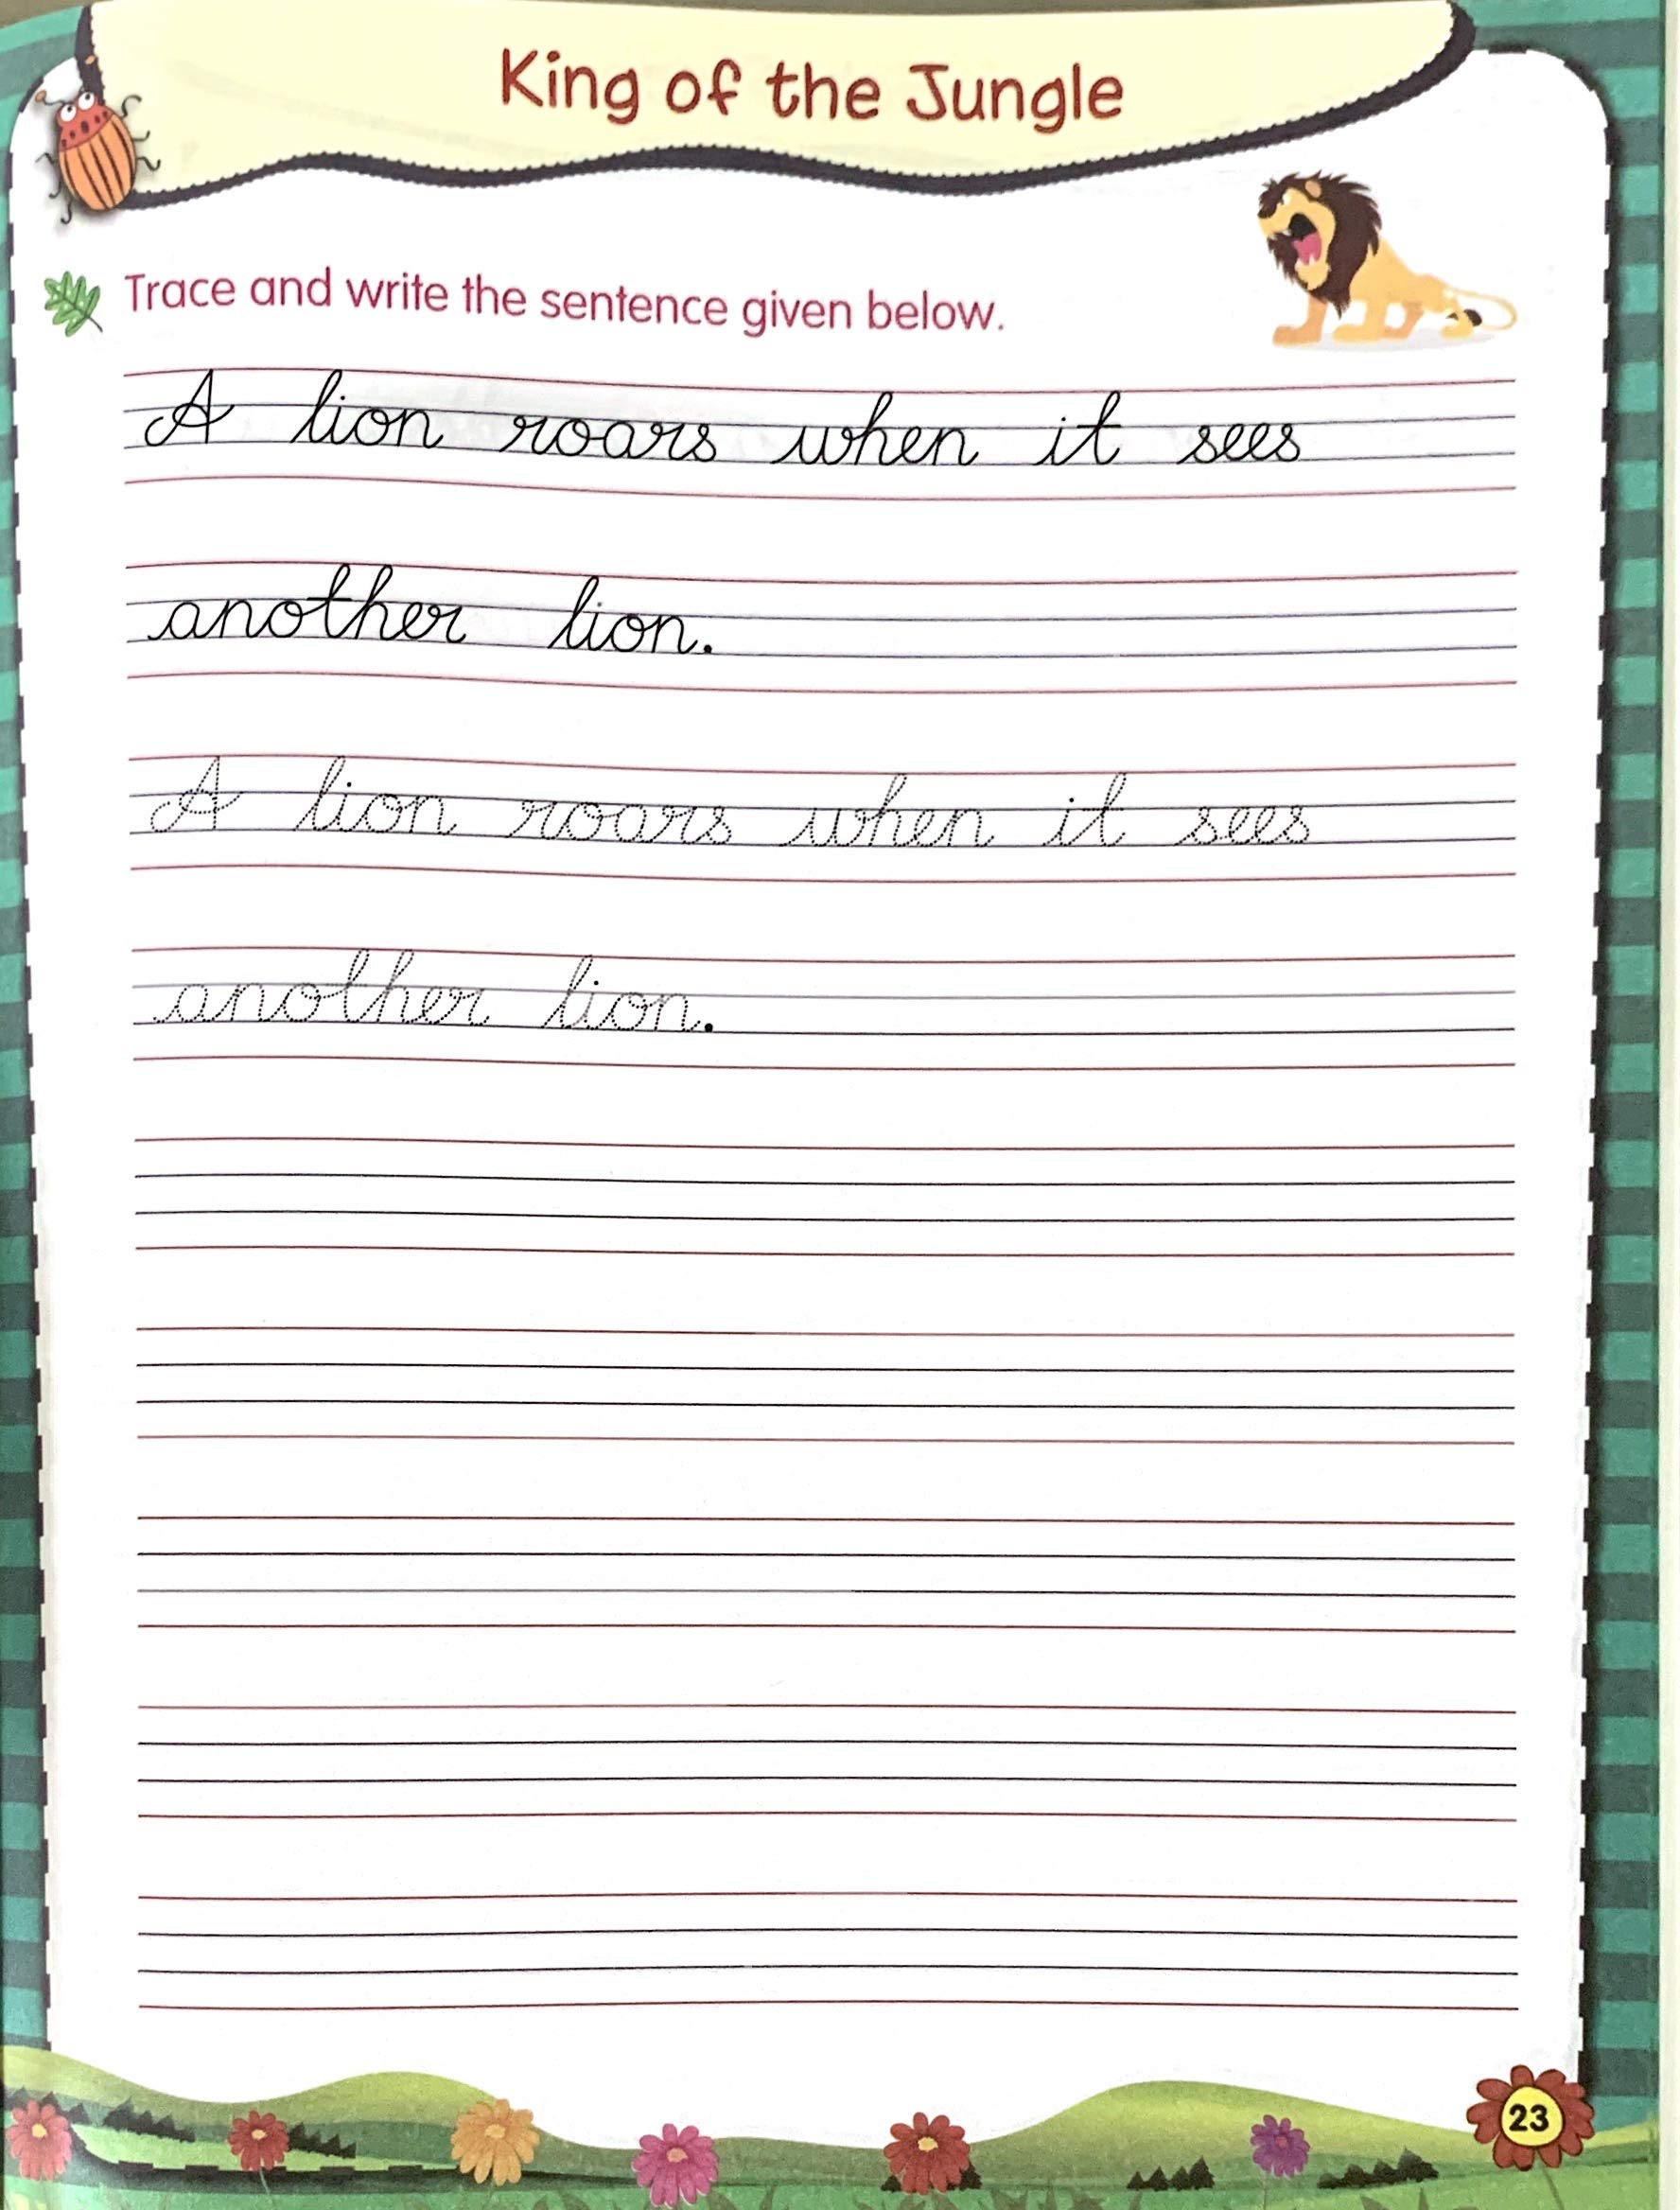 King of the Jungle
Trace and write the sentence given below.
A lion roars when it sees
another lion.
A lion roars when it sees
another lion.
23